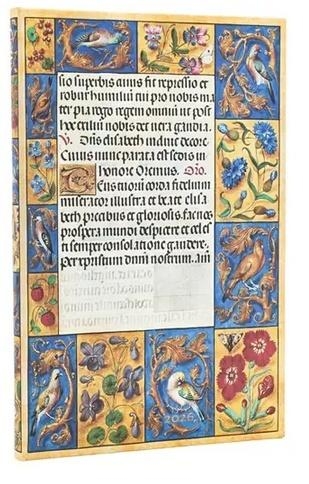 sio superbis cuius fit repressio et
robur humiliū cui pro nobis ma
ter pia rego regem omniū ut post
hoc exiliū nobis det vera gaudia.
V. Dn̄s elisabeth induit decore
Cuius nunc parata est sedis in
honore Oremus. Oro.
Tuorum corda fidelium
miserator illustra et beate elisa
beth precibus et gloriosis fac nos
prospera mundi despicere et celes
ti semper consolatione gaudere.
Per xpristum dn̄m nostrum. am̄
2026